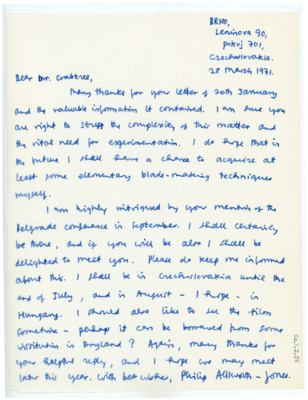 BRNO,
Leninova 90,
pokoj 701,
Czechoslovakia.
28 March 1971.
Dear Mr. Crabtree,
Many thanks for your letter of 20th January
and the valuable information it contained. I am sure you
are right to stress the complexity of this matter and
the vital need for experimentation. I do hope that in
the future I shall have a chance to acquire at
least some elementary blade-making techniques
myself.
I am highly intrigued by your mention of the
Belgrade conference in September. I shall certainly
be there, and if you will be also I shall be
delighted to meet you. Please do keep me informed
about this. I shall be in Czechoslovakia until the
end of July, and in August - I hope - in
Hungary. I should also like to see the film
sometime - perhaps it can be borrowed from some
institution in England? Again, many thanks for
your helpful reply, and I hope we may meet
later this year. With best wishes, Philip Allsworth-Jones.